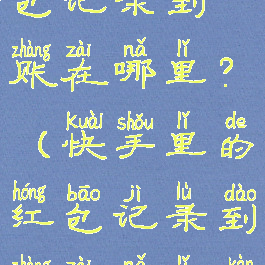 包记录到
zhàng zài nǎ lǐ
账在哪里？
kuài shǒu lǐ de
（快手里的
hóng bāo jì lù dào
红包记录到
zhàng zài nǎ lǐ kàn